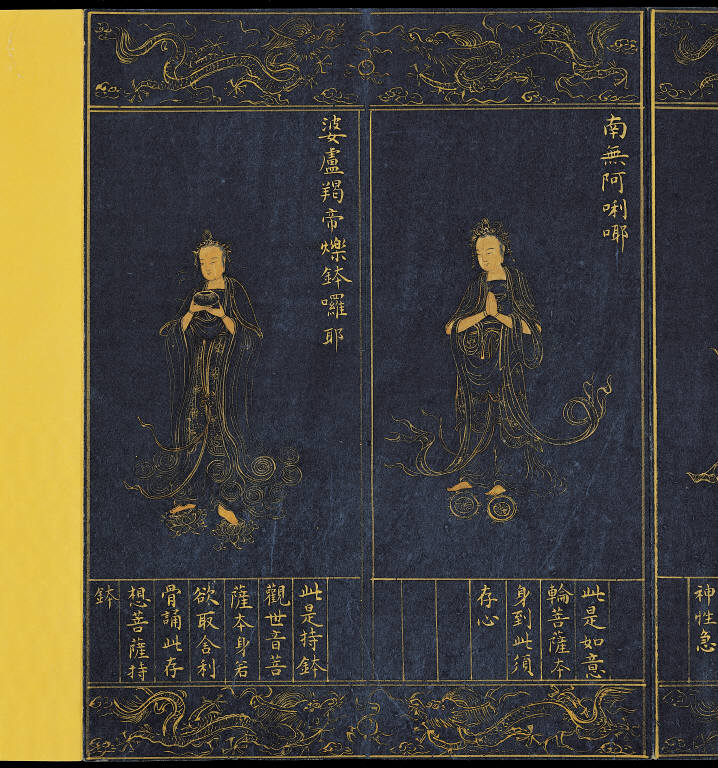 神性急
南無阿唎㖿
此是如意
輪菩薩本
身到此須
存心
婆盧羯帝爍鉢囉耶
此是持鉢
觀世音菩
薩本身若
欲取舍利
骨誦此存
想菩薩持
鉢